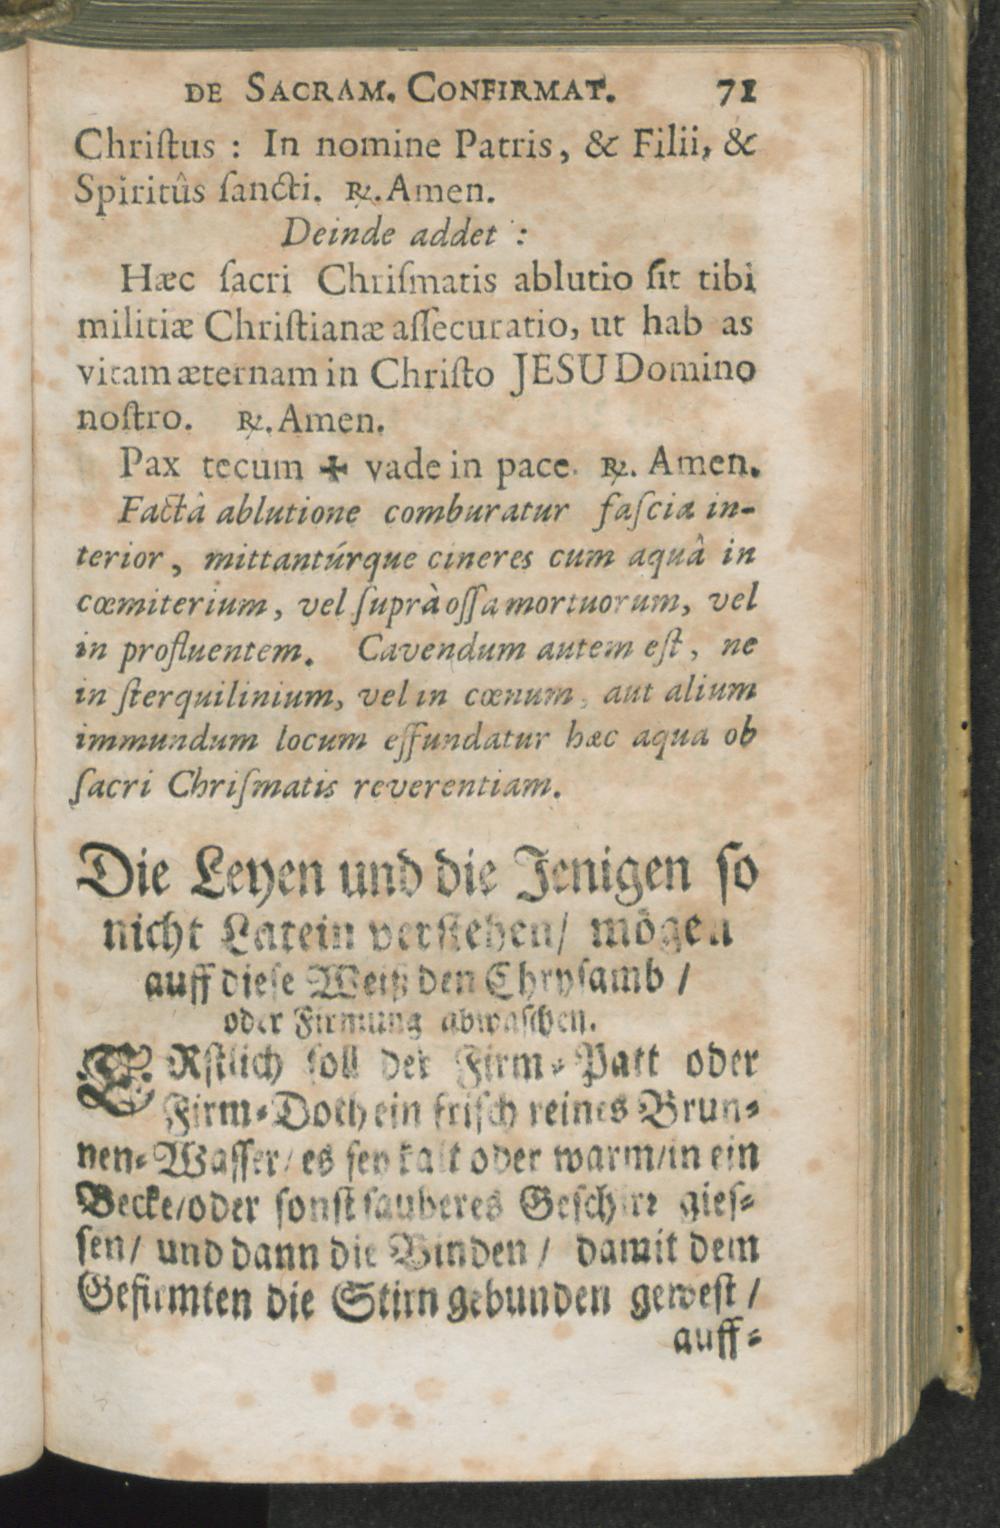 DE SACRAM. CONFIRMAT. 71
Chriſtus : In nomine Patris, & Filii, &
Spiritûs ſancti. ℞. Amen.
Deinde addet :
Hæc ſacri Chriſmatis ablutio ſit tibi
militiæ Chriſtianæ aſſecuratio, ut hab as
vitam æternam in Chriſto JESU Domino
noſtro. ℞. Amen.
Pax tecum ✠ vade in pace. ℞. Amen.
Factâ ablutione comburatur faſcia in-
terior, mittantúrque cineres cum aquâ in
cœmiterium, vel ſuprà oſſa mortuorum, vel
in profluentem. Cavendum autem eſt, ne
in ſterquilinium, vel in cœnum, aut alium
immundum locum effundatur hæc aqua ob
ſacri Chriſmatis reverentiam.
Die Leyen und die Jenigen ſo
nicht Latein verſtehen/ mögen
auff dieſe Weiß den Chryſamb /
oder Firmung abwaſchen.
ERſtlich ſoll der Firm-Patt oder
Firm-Doth ein friſch reines Brun-
nen-Waſſer/ es ſey kalt oder warm/in ein
Becke/oder ſonſt ſauberes Geſchirr gieſ-
ſen/ und dann die Binden / damit dem
Gefirmten die Stirn gebunden geweſt /
auff-